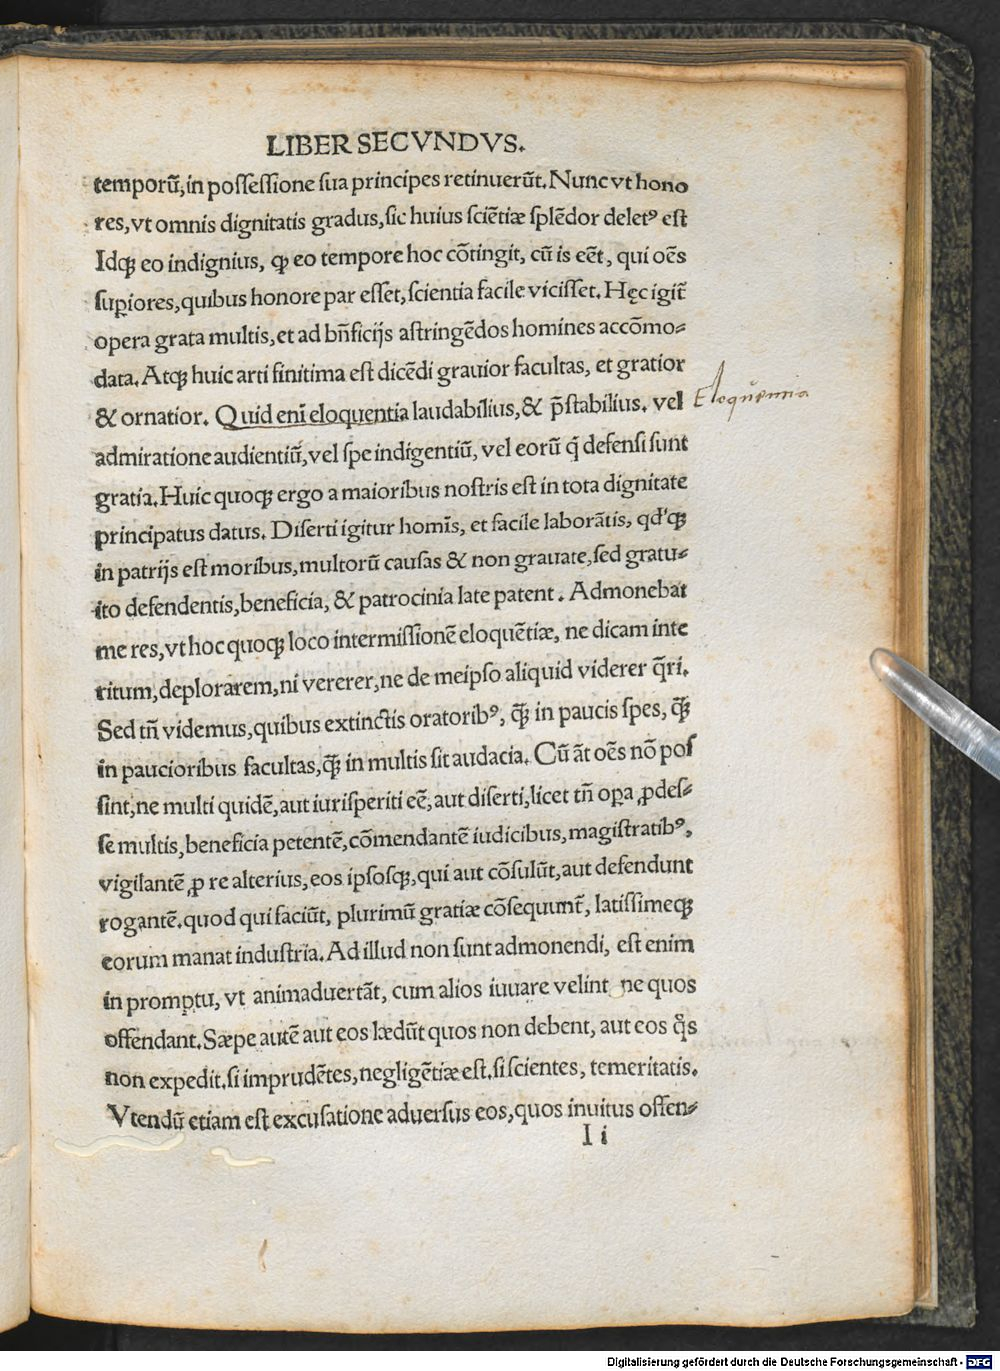 LIBER SECVNDVS.
temporū, in possessione sua principes retinuerūt. Nunc vt hono
res, vt omnis dignitatis gradus, sic huius sciētiæ splēdor deletꝰ est
Idqꝫ eo indignius, ꝙ eo tempore hoc cōtingit, cū is eēt, qui oēs
suꝑiores, quibus honore par esset, scientia facile vicisset. Hęc igit̄
opera grata multis, et ad bn̄ficijs astringēdos homines accōmo⸗
data. Atqꝫ huic arti finitima est dicēdi grauior facultas, et gratior
& ornatior. Quid eni̅ eloquentia laudabilius, & p̄stabilius. vel
Eloquēntia
admiratione audientiū, vel spe indigentiū, vel eorū q̄ defensi sunt
gratia. Huic quoqꝫ ergo a maioribus nostris est in tota dignitate
principatus datus. Diserti igitur homi̅s, et facile laborātis, qd'qꝫ
in patrijs est moribus, multorū causas & non grauate, sed gratu⸗
ito defendentis, beneficia, & patrocinia late patent. Admonebat
me res, vt hoc quoqꝫ loco intermissionē eloquētiæ, ne dicam inte
ritum, deplorarem, ni vererer, ne de meipso aliquid viderer q̄ri.
Sed tn̄ videmus, quibus extinctis oratoribꝰ, q̄ꝫ in paucis spes, q̄ꝫ
in paucioribus facultas, q̄ꝫ in multis sit audacia. Cū āt oēs nō pos
sint, ne multi quidē, aut iurisperiti eē, aut diserti, licet tn̄ oꝑa ꝓdes⸗
se multis, beneficia petentē, cōmendantē iudicibus, magistratibꝰ,
vigilantē ꝓ re alterius, eos ipsosqꝫ, qui aut cōsulūt, aut defendunt
rogantē. quod qui faciūt, plurimū gratiæ cōsequunt̄, latissimeqꝫ
eorum manat industria. Ad illud non sunt admonendi, est enim
in promptu, vt animaduertāt, cum alios iuuare velint ne quos
offendant. Sæpe autē aut eos lædūt quos non debent, aut eos q̊s
non expedit. si imprudētes, negligētiæ est. si scientes, temeritatis.
Vtendū etiam est excusatione aduersus eos, quos inuitus offen⸗
I i
Digitalisierung gefördert durch die Deutsche Forschungsgemeinschaft - DFG